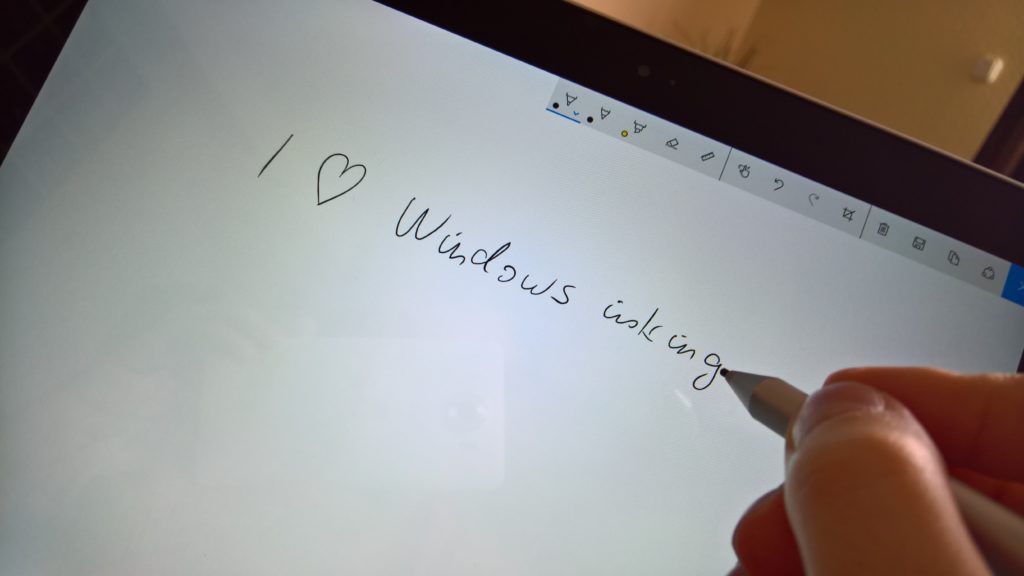 I ♡ Windows inking